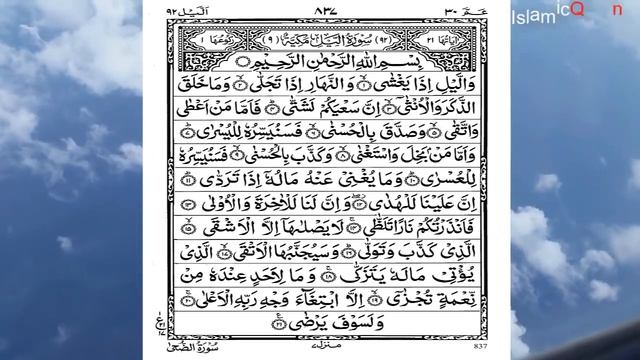 Islamic Q n
الّيل ٩٢
٨٣٧
عـمّ ٣٠
اٰیاتها ٢١
(٩٢) سُوْرَةُ الَّيْلِ مَكِّيَّةٌ (٩)
رکوعها ١
بِسْمِ اللّٰهِ الرَّحْمٰنِ الرَّحِيْمِ
وَالَّيْلِ اِذَا يَغْشٰى ۙ﴿١﴾ وَالنَّهَارِ اِذَا تَجَلّٰى ۙ﴿٢﴾ وَمَا خَلَقَ
الذَّكَرَ وَالْاُنْثٰٓى ۙ﴿٣﴾ اِنَّ سَعْيَكُمْ لَشَتّٰى ؕ﴿٤﴾ فَاَمَّا مَنْ اَعْطٰى
وَاتَّقٰى ۙ﴿٥﴾ وَصَدَّقَ بِالْحُسْنٰى ۙ﴿٦﴾ فَسَنُيَسِّرُهٗ لِلْيُسْرٰى ؕ﴿٧﴾
وَاَمَّا مَنْۢ بَخِلَ وَاسْتَغْنٰى ۙ﴿٨﴾ وَكَذَّبَ بِالْحُسْنٰى ۙ﴿٩﴾ فَسَنُيَسِّرُهٗ
لِلْعُسْرٰى ؕ﴿١٠﴾ وَمَا يُغْنِىْ عَنْهُ مَالُهٗٓ اِذَا تَرَدّٰى ؕ﴿١١﴾
اِنَّ عَلَيْنَا لَلْهُدٰى ۖ﴿١٢﴾ وَاِنَّ لَنَا لَلْاٰخِرَةَ وَالْاُوْلٰى ﴿١٣﴾
فَاَنْذَرْتُكُمْ نَارًا تَلَظّٰى ۚ﴿١٤﴾ لَا يَصْلٰىهَآ اِلَّا الْاَشْقَى ۙ﴿١٥﴾
الَّذِىْ كَذَّبَ وَتَوَلّٰى ؕ﴿١٦﴾ وَسَيُجَنَّبُهَا الْاَتْقَى ۙ﴿١٧﴾ الَّذِىْ
يُؤْتِىْ مَالَهٗ يَتَزَكّٰى ۚ﴿١٨﴾ وَمَا لِاَحَدٍ عِنْدَهٗ مِنْ
نِّعْمَةٍ تُجْزٰٓى ۙ﴿١٩﴾ اِلَّا ابْتِغَآءَ وَجْهِ رَبِّهِ الْاَعْلٰى ۚ﴿٢٠﴾
وَلَسَوْفَ يَرْضٰى ﴿٢١﴾
سُوْرَةُ الضُّحٰى
منزل ٧
837